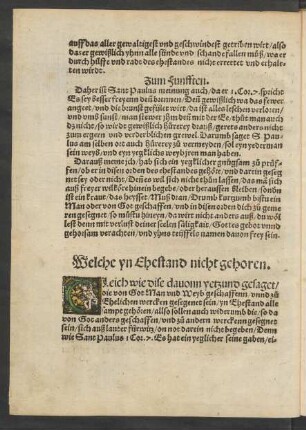 auff das aller gewaltigest vnd geschwindest getriben wirt / also
das er gewißlich yhnn alle sünde vnd schande fallen muß / wa er
durch hilffe vnd radt des ehestandes nicht errettet vnd erhal-
ten würde.
Zum Fünfften.
Daher ist Sanct Paulus meinung auch / da er 1. Cor. 7. spricht
Es sey besser freyenn denn brennen / Denn gewißlich wa das fewer
angeet / vnd die brunst gefület wirt / da ist alles leschen verloren /
vnd vmb sunst / man stewer jhm denn mit der Ee / thut man auch
dz nichte / so wirdt gewißlich hürerey drauß / geret es anders nicht
zum ergern vnd verderblichern aussgang. Darumb saget S. Paul
us am selben ort auch hürerey zu vermeyden / sol eyn yederman
sein weyb / vnd eyn yegklich weyb yren man haben.
Darauß mune jtz / hab sich ein yegklicher gnügsam zu prüf-
fen / ob er in disen orden des ehestandes gehöre / vnd darein gesey
met sey oder nicht / Denn es wil sich nicht also thun lassen / das mä
sich auß freyer wilköre hinein begebe / oder heraussen bleibe / sonön
ist ein kraut / das heysset Muß dran / Drumb kurtzumb bistu ein
Man oder von Got geschaffen / vnd in disen orden dich zu gene
ren gesegnet / so mustu hineyn / da wirt nicht anders auß / du wöl
lest denn mit verlust deiner seelen säligkait / Gottes gebot vnnd
gehorsam verachten / vnd yhns teüffels namen dauon frey sein.
Welche yn Ehestand nicht gehoren.
Gleich wie dise dauonn yetzund gesaget /
die von Got Man vnd Weyb geschaffenn / vnnd zu
Ehelichen wercken gesegenet sein / yn Ehestand alle
sampt gehören / also sollen auch widerumb die / so da
von Got anders geschaffen / vnd zu andern wercken gesegnet
sein / sich auß lauter fürwitz / on not darein nicht begeben / Denn
wie Sanct Paulus 1 Cor. 7. Es hat ein yeglicher seine gaben / ei-